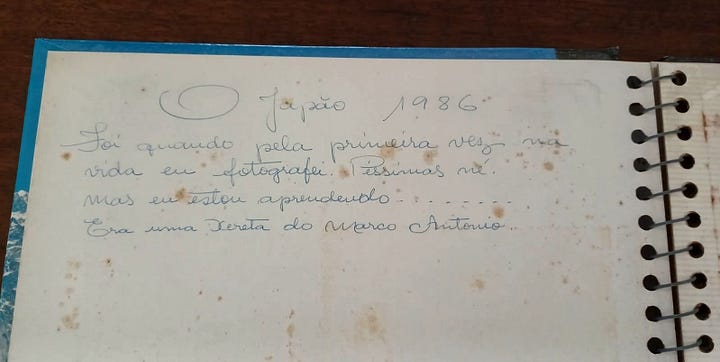 O Japão 1986
Foi quando pela primeira vez na
vida eu fotografei. Péssimas né.
mas eu estou aprendendo. . . . . . . .
Era uma Xereta do Marco Antonio.